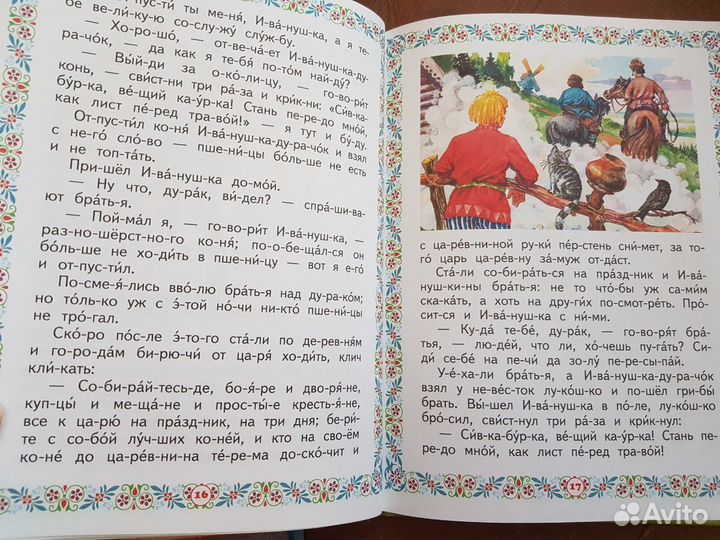 от-пус-ти́ ты ме-ня́, И-ва́-нуш-ка, а я те-
бе́ ве-ли́-ку-ю со-слу-жу́ слу́ж-бу.
— Хо-ро-шо́, — от-ве-ча́-ет И-ва́-нуш-ка-ду-
ра-чо́к, — да как я те-бя́ по-то́м най-ду́?
— Вы́й-ди за о-ко́-ли-цу, — го-во-ри́т
конь, — сви́ст-ни три ра́-за и кри́к-ни: «Си́в-ка-
бу́р-ка, ве́-щий ка-у́р-ка! Стань пе-ре-до мно́й,
как лист пе́-ред тра-во́й!» — я тут и бу́-ду.
От-пус-ти́л ко-ня́ И-ва́-нуш-ка-ду-ра-чо́к и взял
с не-го́ сло́-во — пше-ни́-цы бо́ль-ше не есть
и не топ-та́ть.
При-шёл И-ва́-нуш-ка до-мо́й.
— Ну что, ду-ра́к, ви́-дел? — спра́-ши-ва-
ют бра́ть-я.
— Пой-ма́л я, — го-во-ри́т И-ва́-нуш-ка, —
раз-но-шёрст-но-го ко-ня́; по-о-бе-ща́л-ся он
бо́ль-ше не хо-ди́ть в пше-ни́-цу — вот я е-го́
и от-пус-ти́л.
По-сме-я́-лись вво́-лю бра́ть-я над ду-ра-ко́м;
но то́ль-ко уж с э́-той но́-чи ни-кто́ пше-ни́-цы
не тро́-гал.
Ско́-ро по́с-ле э́-то-го ста́-ли по де-рев-ня́м
и го-ро-да́м би-рю-чи́ от ца-ря́ хо-ди́ть, клич
кли́-кать:
— Со-би-ра́й-тесь-де, бо-я́-ре и дво-ря́-не,
куп-цы́ и ме-ща́-не и прос-ты́-е кресть-я́-не,
все к ца-рю́ на пра́зд-ник, на три дня; бе-ри́-
те с со-бо́й лу́ч-ших ко-не́й, и кто на сво-ём
ко-не́ до ца-ре́в-ни-на те́-ре-ма до-ско́-чит и
16
с ца-ре́в-ни-ной ру-ки́ пе́р-стень сни́-мет, за то-
го́ царь ца-ре́в-ну за́-муж от-да́ст.
Ста́-ли со-би-ра́ть-ся на пра́зд-ник и И-ва́-
нуш-ки-ны бра́ть-я: не то что́-бы уж са-ми́м
ска-ка́ть, а хоть на дру-ги́х по-смот-ре́ть. Про́-
сит-ся и И-ва́-нуш-ка с ни́-ми.
— Ку-да́ те-бе́, ду-ра́к, — го-во-ря́т бра́ть-
я, — лю-де́й, что ли, хо́-чешь пу-га́ть? Си-
ди́ се-бе́ на пе-чи́ да зо-лу́ пе-ре-сы-па́й.
У-е́-ха-ли бра́ть-я, а И-ва́-нуш-ка-ду-ра-чо́к
взял у не-ве́с-ток лу-ко́ш-ко и по-шёл гри-бы́
брать. Вы́-шел И-ва́-нуш-ка в по́-ле, лу-ко́ш-ко
бро́-сил, сви́ст-нул три ра́-за и кри́к-нул:
— Си́в-ка-бу́р-ка, ве́-щий ка-у́р-ка! Стань
пе-ре-до мно́й, как лист пе́-ред тра-во́й!
17
Avito